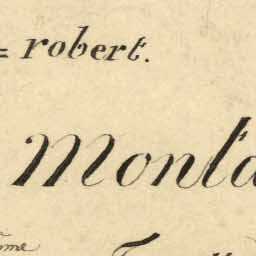 = robert.
Monta
me